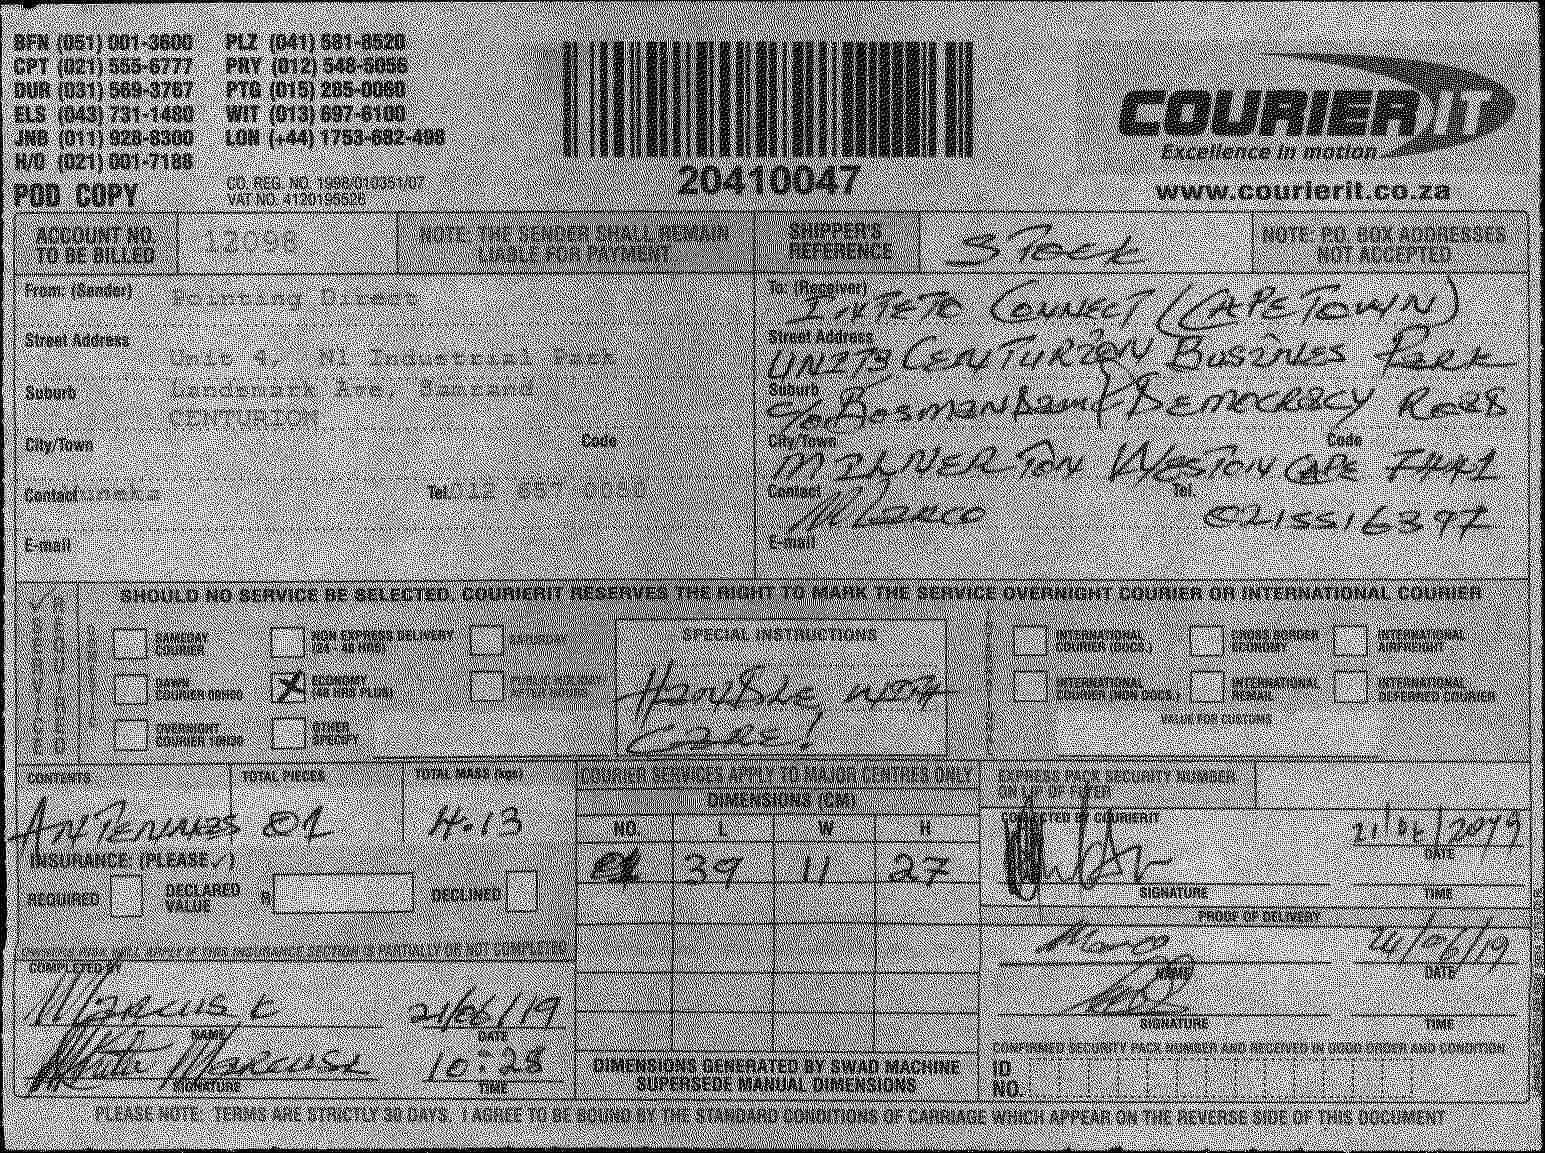 BFN (051) 001-3600 PLZ (041) 581-8520
CPT (021) 555-6777 PRY (012) 548-5056
DUR (031) 569-3767 PTG (015) 285-0060
ELS (043) 731-1480 WIT (013) 697-6100
JNB (011) 928-8300 LON (+44) 1753-682-498
H/O (021) 001-7188
POD COPY
CO. REG. NO. 1998/010351/07
VAT NO. 4120195526
20410047
COURIER IT
Excellence in motion
www.courierit.co.za
ACCOUNT NO. TO BE BILLED 12098
NOTE: THE SENDER SHALL REMAIN LIABLE FOR PAYMENT
SHIPPER'S REFERENCE STOCK
NOTE: P.O. BOX ADDRESSES NOT ACCEPTED
From: (Sender) Pointing Direct
Street Address Unit 4, N1 Industrial Park
Suburb Landsmark Ave, Samrand
CENTURION
City/Town Code
Contact Tel.
E-mail
To: (Receiver) INTETO CONNECT (CAPE TOWN)
Street Address UNIT 3 CENTURION BUSINES PARK
Suburb c/o BOSMANDAM & DEMOCRACY ROAD
City/Town Code
MILNERTON WESTON CAPE 7441
Contact MARCO Tel. 0215516397
E-mail
SHOULD NO SERVICE BE SELECTED, COURIERIT RESERVES THE RIGHT TO MARK THE SERVICE OVERNIGHT COURIER OR INTERNATIONAL COURIER
SAMEDAY COURIER
DAWN COURIER 08H00
OVERNIGHT COURIER 10H30
NON EXPRESS DELIVERY (24 - 48 HRS)
X ECONOMY (48 HRS PLUS)
OTHER SPECIFY
SATURDAY
PUBLIC HOLIDAY AFTER HOURS
SPECIAL INSTRUCTIONS
HANDLE WITH
CARE!
INTERNATIONAL COURIER (DOCS.)
INTERNATIONAL COURIER (NON DOCS.)
CROSS BORDER ECONOMY
INTERNATIONAL REMAIL
INTERNATIONAL AIRFREIGHT
INTERNATIONAL DEFERRED COURIER
VALUE FOR CUSTOMS
CONTENTS TOTAL PIECES TOTAL MASS (kgs)
ANTENNAS 01 4.13
INSURANCE: (PLEASE ✓)
REQUIRED DECLARED VALUE R DECLINED
COMPLETED BY
MARCUS K 21/06/19
NAME DATE
MARCUSK 10:28
SIGNATURE TIME
COURIER SERVICES APPLY TO MAJOR CENTRES ONLY
DIMENSIONS (CM)
NO. L W H
01 39 11 27
DIMENSIONS GENERATED BY SWAD MACHINE
SUPERSEDE MANUAL DIMENSIONS
EXPRESS PACK SECURITY NUMBER
ON LIP OF FLYER
COLLECTED BY COURIERIT
DATE
SIGNATURE TIME
PROOF OF DELIVERY
Marco 24/06/19
NAME DATE
SIGNATURE TIME
CONFIRMED SECURITY PACK NUMBER AND RECEIVED IN GOOD ORDER AND CONDITION
ID NO.
PLEASE NOTE: TERMS ARE STRICTLY 30 DAYS. I AGREE TO BE BOUND BY THE STANDARD CONDITIONS OF CARRIAGE WHICH APPEAR ON THE REVERSE SIDE OF THIS DOCUMENT